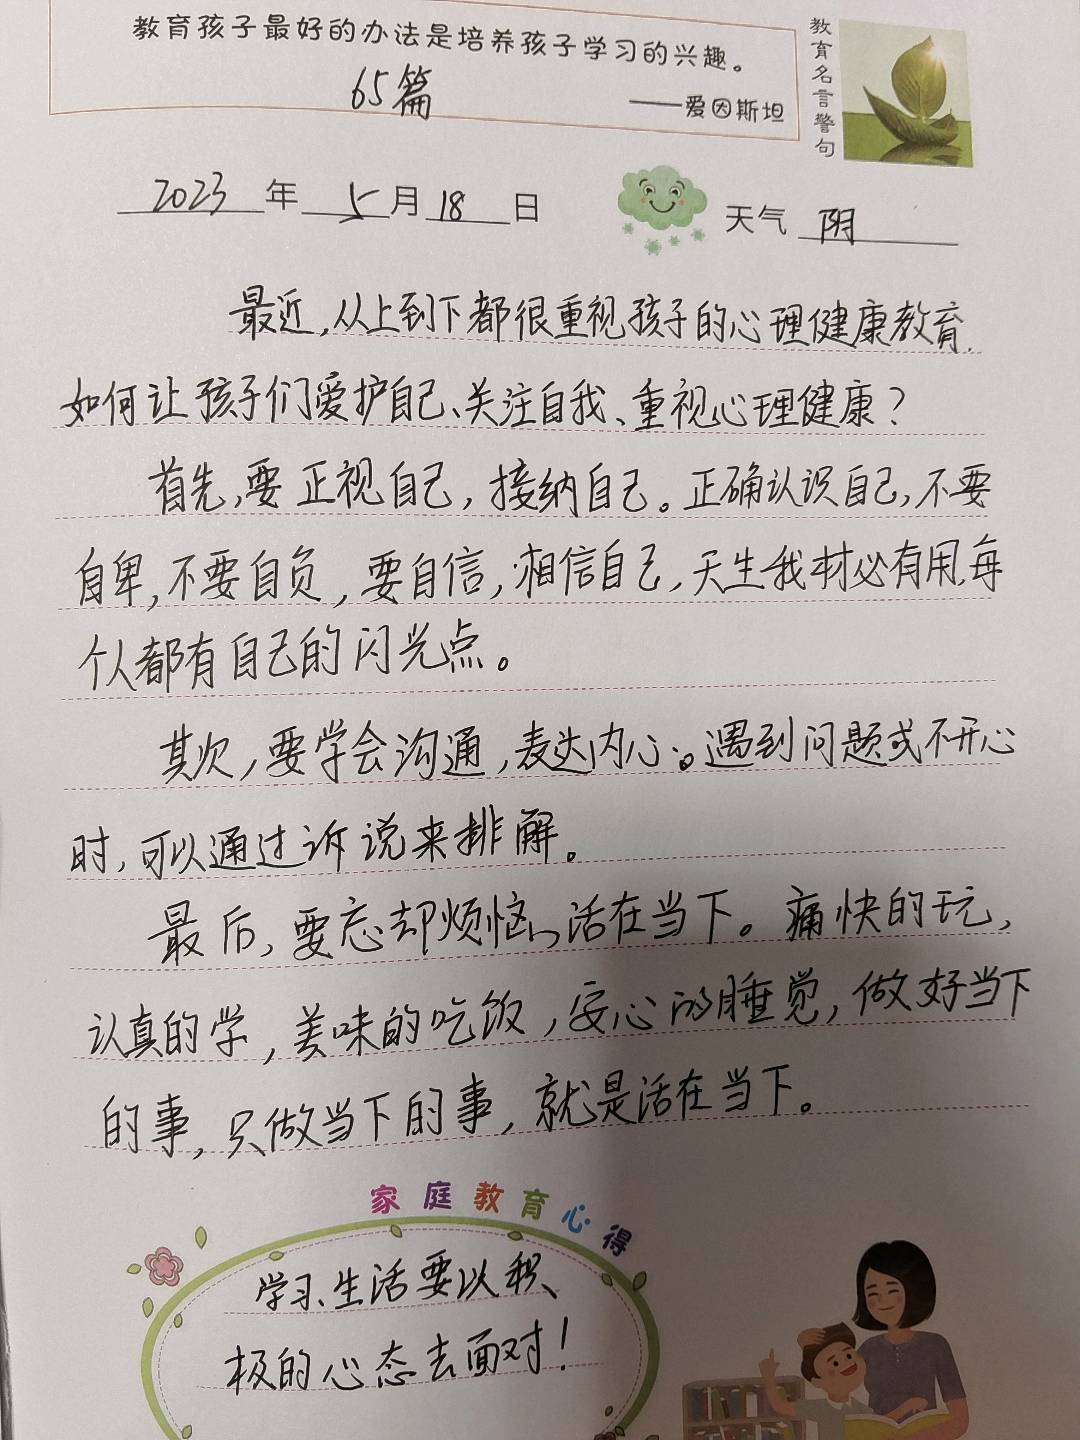 教育孩子最好的办法是培养孩子学习的兴趣。
65篇
——爱因斯坦
教育名言警句
2023年5月18日
天气 阴
最近,从上到下都很重视孩子的心理健康教育,
如何让孩子们爱护自己、关注自我、重视心理健康?
首先,要正视自己,接纳自己。正确认识自己,不要
自卑,不要自负,要自信,相信自己,天生我材必有用,每
个人都有自己的闪光点。
其次,要学会沟通,表达内心。遇到问题或不开心
时,可以通过诉说来排解。
最后,要忘却烦恼,活在当下。痛快的玩,
认真的学,美味的吃饭,安心的睡觉,做好当下
的事,只做当下的事,就是活在当下。
家庭教育心得
学习、生活要以积
极的心态去面对!